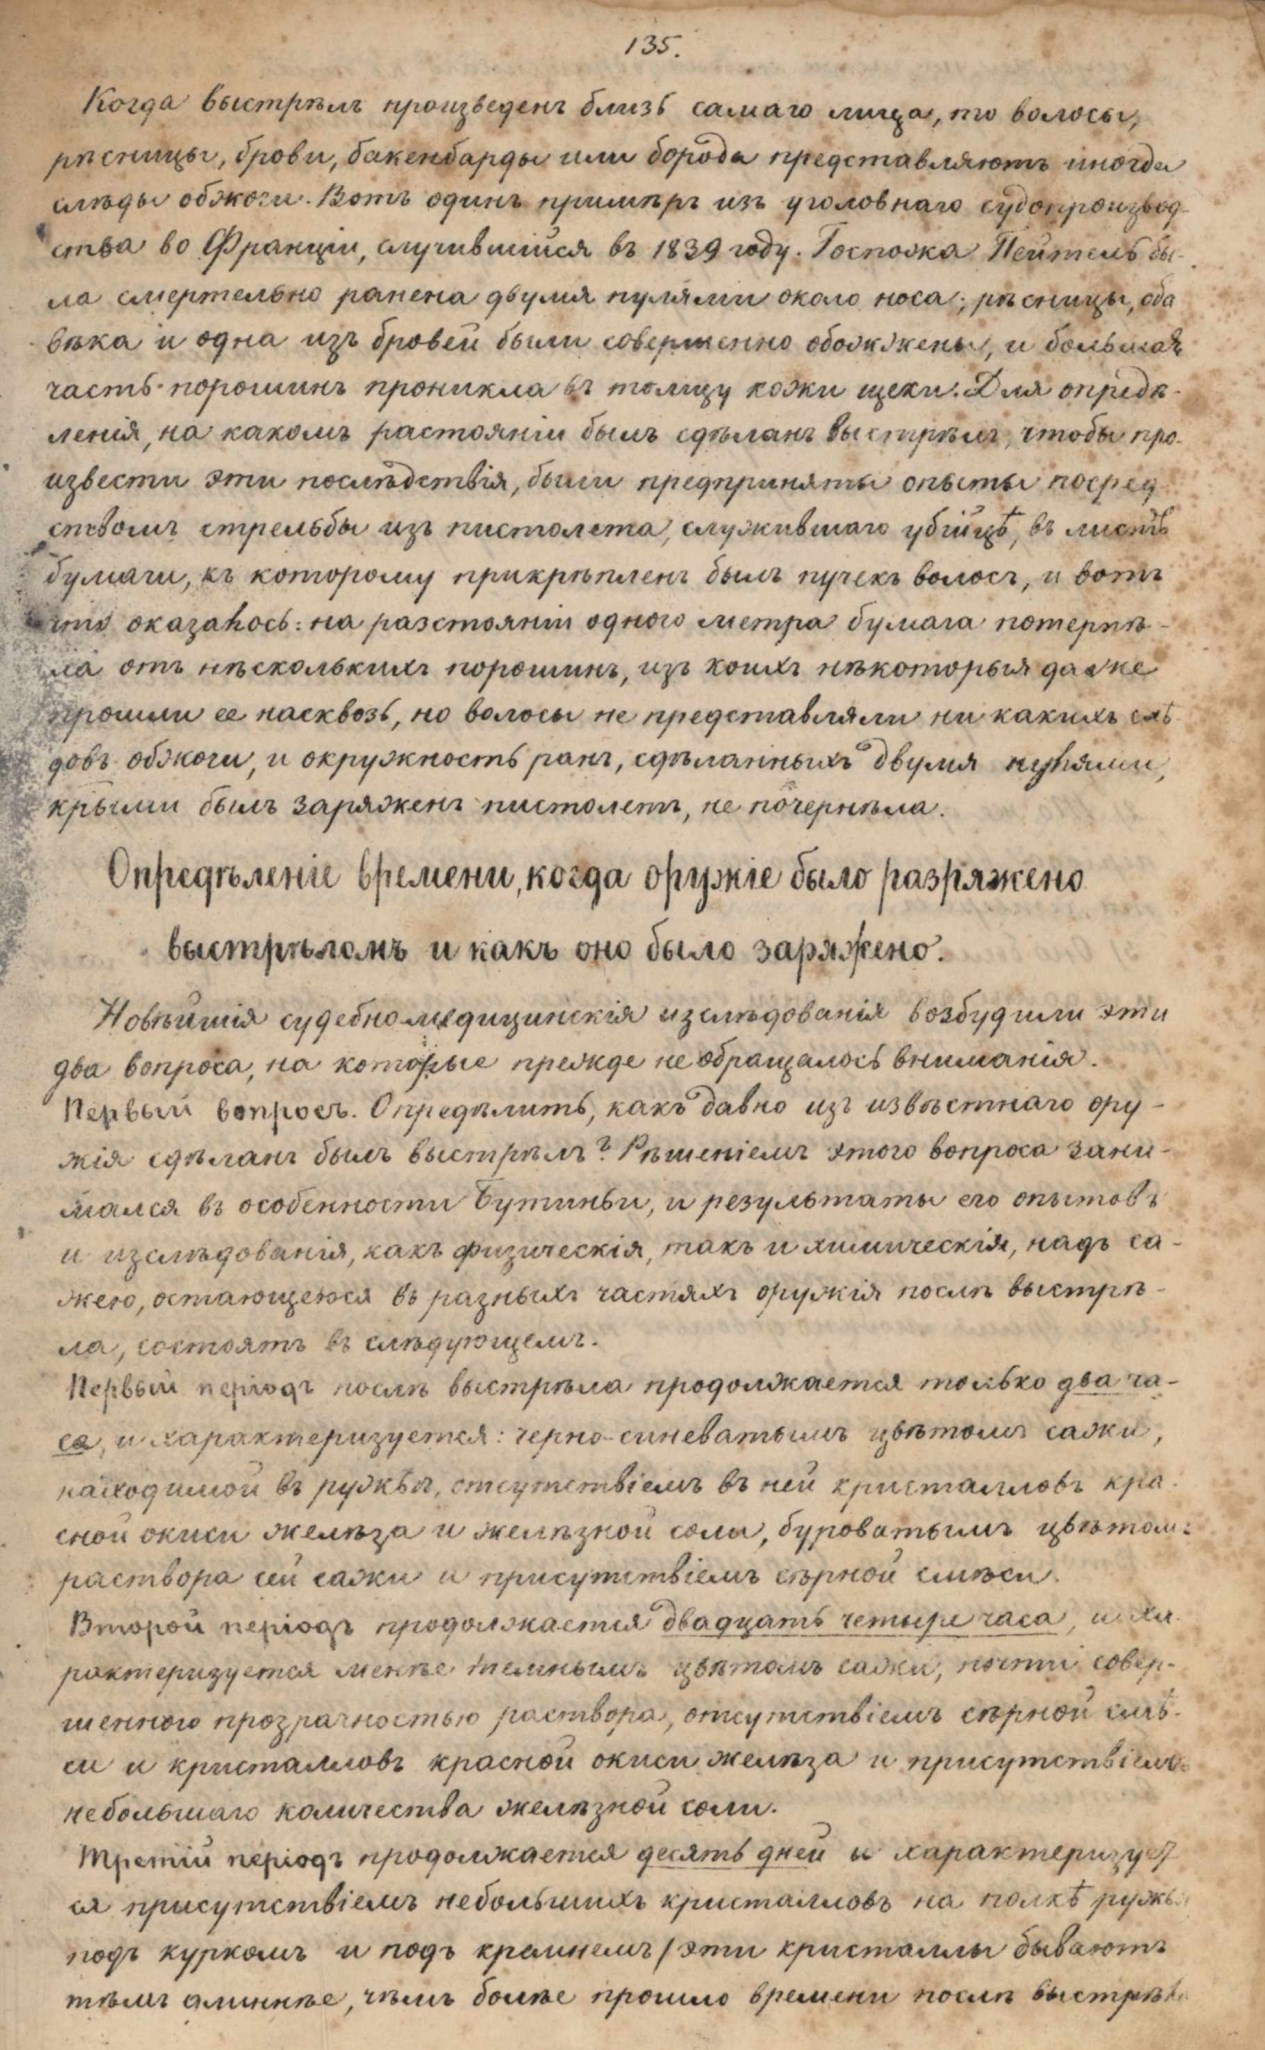 135.
Когда выстрѣлъ произведенъ близь самаго лица, то волосы,
рѣсницы, брови, бакенбарды или борода представляютъ иногда
слѣды обжоги. Вотъ одинъ примѣръ изъ уголовнаго судопроизвод-
ства во Франціи, случившійся въ 1839 году. Госпожа Пейтель бы-
ла смертельно ранена двумя пулями около носа; рѣсницы, оба
вѣка и одна изъ бровей были совершенно обожжены, и большая
часть порошинъ проникла въ толщу кожи щеки. Для опредѣ-
ленія, на какомъ растояніи былъ сдѣланъ выстрѣлъ, чтобы про-
извести эти послѣдствія, были предприняты опыты посред
ствомъ стрельбы изъ пистолета, служившаго убійцѣ, въ листъ
бумаги, къ которому прикрѣпленъ былъ пучекъ волосъ, и вотъ
что оказалось: на разстояніи одного метра бумага потерпѣ-
ла отъ нѣсколькихъ порошинъ, изъ коихъ нѣкоторыя даже
прошли ее насквозь, но волосы не представляли ни какихъ слѣ
довъ обжоги, и окружность ранъ, сдѣланныхъ двумя пулями,
крыми былъ заряженъ пистолетъ, не почернѣла.
Опредѣленіе времени, когда оружіе было разряжено
выстрѣломъ и какъ оно было заряжено.
Новѣйшія судебно-медицинскія изслѣдованія возбудили эти
два вопроса, на которые прежде не обращалось вниманія.
Первый вопросъ. Опредѣлить, какъ давно изъ извѣстнаго ору-
жія сдѣланъ былъ выстрѣлъ? Рѣшеніемъ этого вопроса зани-
мался въ особенности Бутиньи, и результаты его опытовъ
и изслѣдованія, какъ физическія, такъ и химическія, надъ са-
жею, остающеюся въ разныхъ частяхъ оружія послѣ выстрѣ-
ла, состоятъ въ слѣдующемъ.
Первый періодъ послѣ выстрѣла продолжается только два ча-
са, и характеризуется: черно-синеватымъ цвѣтомъ сажи,
находимой въ ружьѣ, отсутствіемъ въ ней кристалловъ кра-
сной окиси желѣза и желѣзной соли, буроватымъ цвѣтомъ
раствора сей сажи и присутствіемъ сѣрной смѣси.
Второй періодъ продолжается двадцать четыре часа, и ха-
рактеризуется менѣе темнымъ цвѣтомъ сажи, почти совер-
шенного прозрачностью раствора, отсутствіемъ сѣрной смѣ-
си и кристалловъ красной окиси желѣза и присутствіемъ
небольшаго количества желѣзной соли.
Третій періодъ продолжается десять дней и характеризует
ся присутствіемъ небольшихъ кристалловъ на полкѣ ружья
подъ куркомъ и подъ кремнемъ / эти кристаллы бываютъ
тѣмъ длиннѣе, чѣмъ болѣе прошло времени послѣ выстрѣла